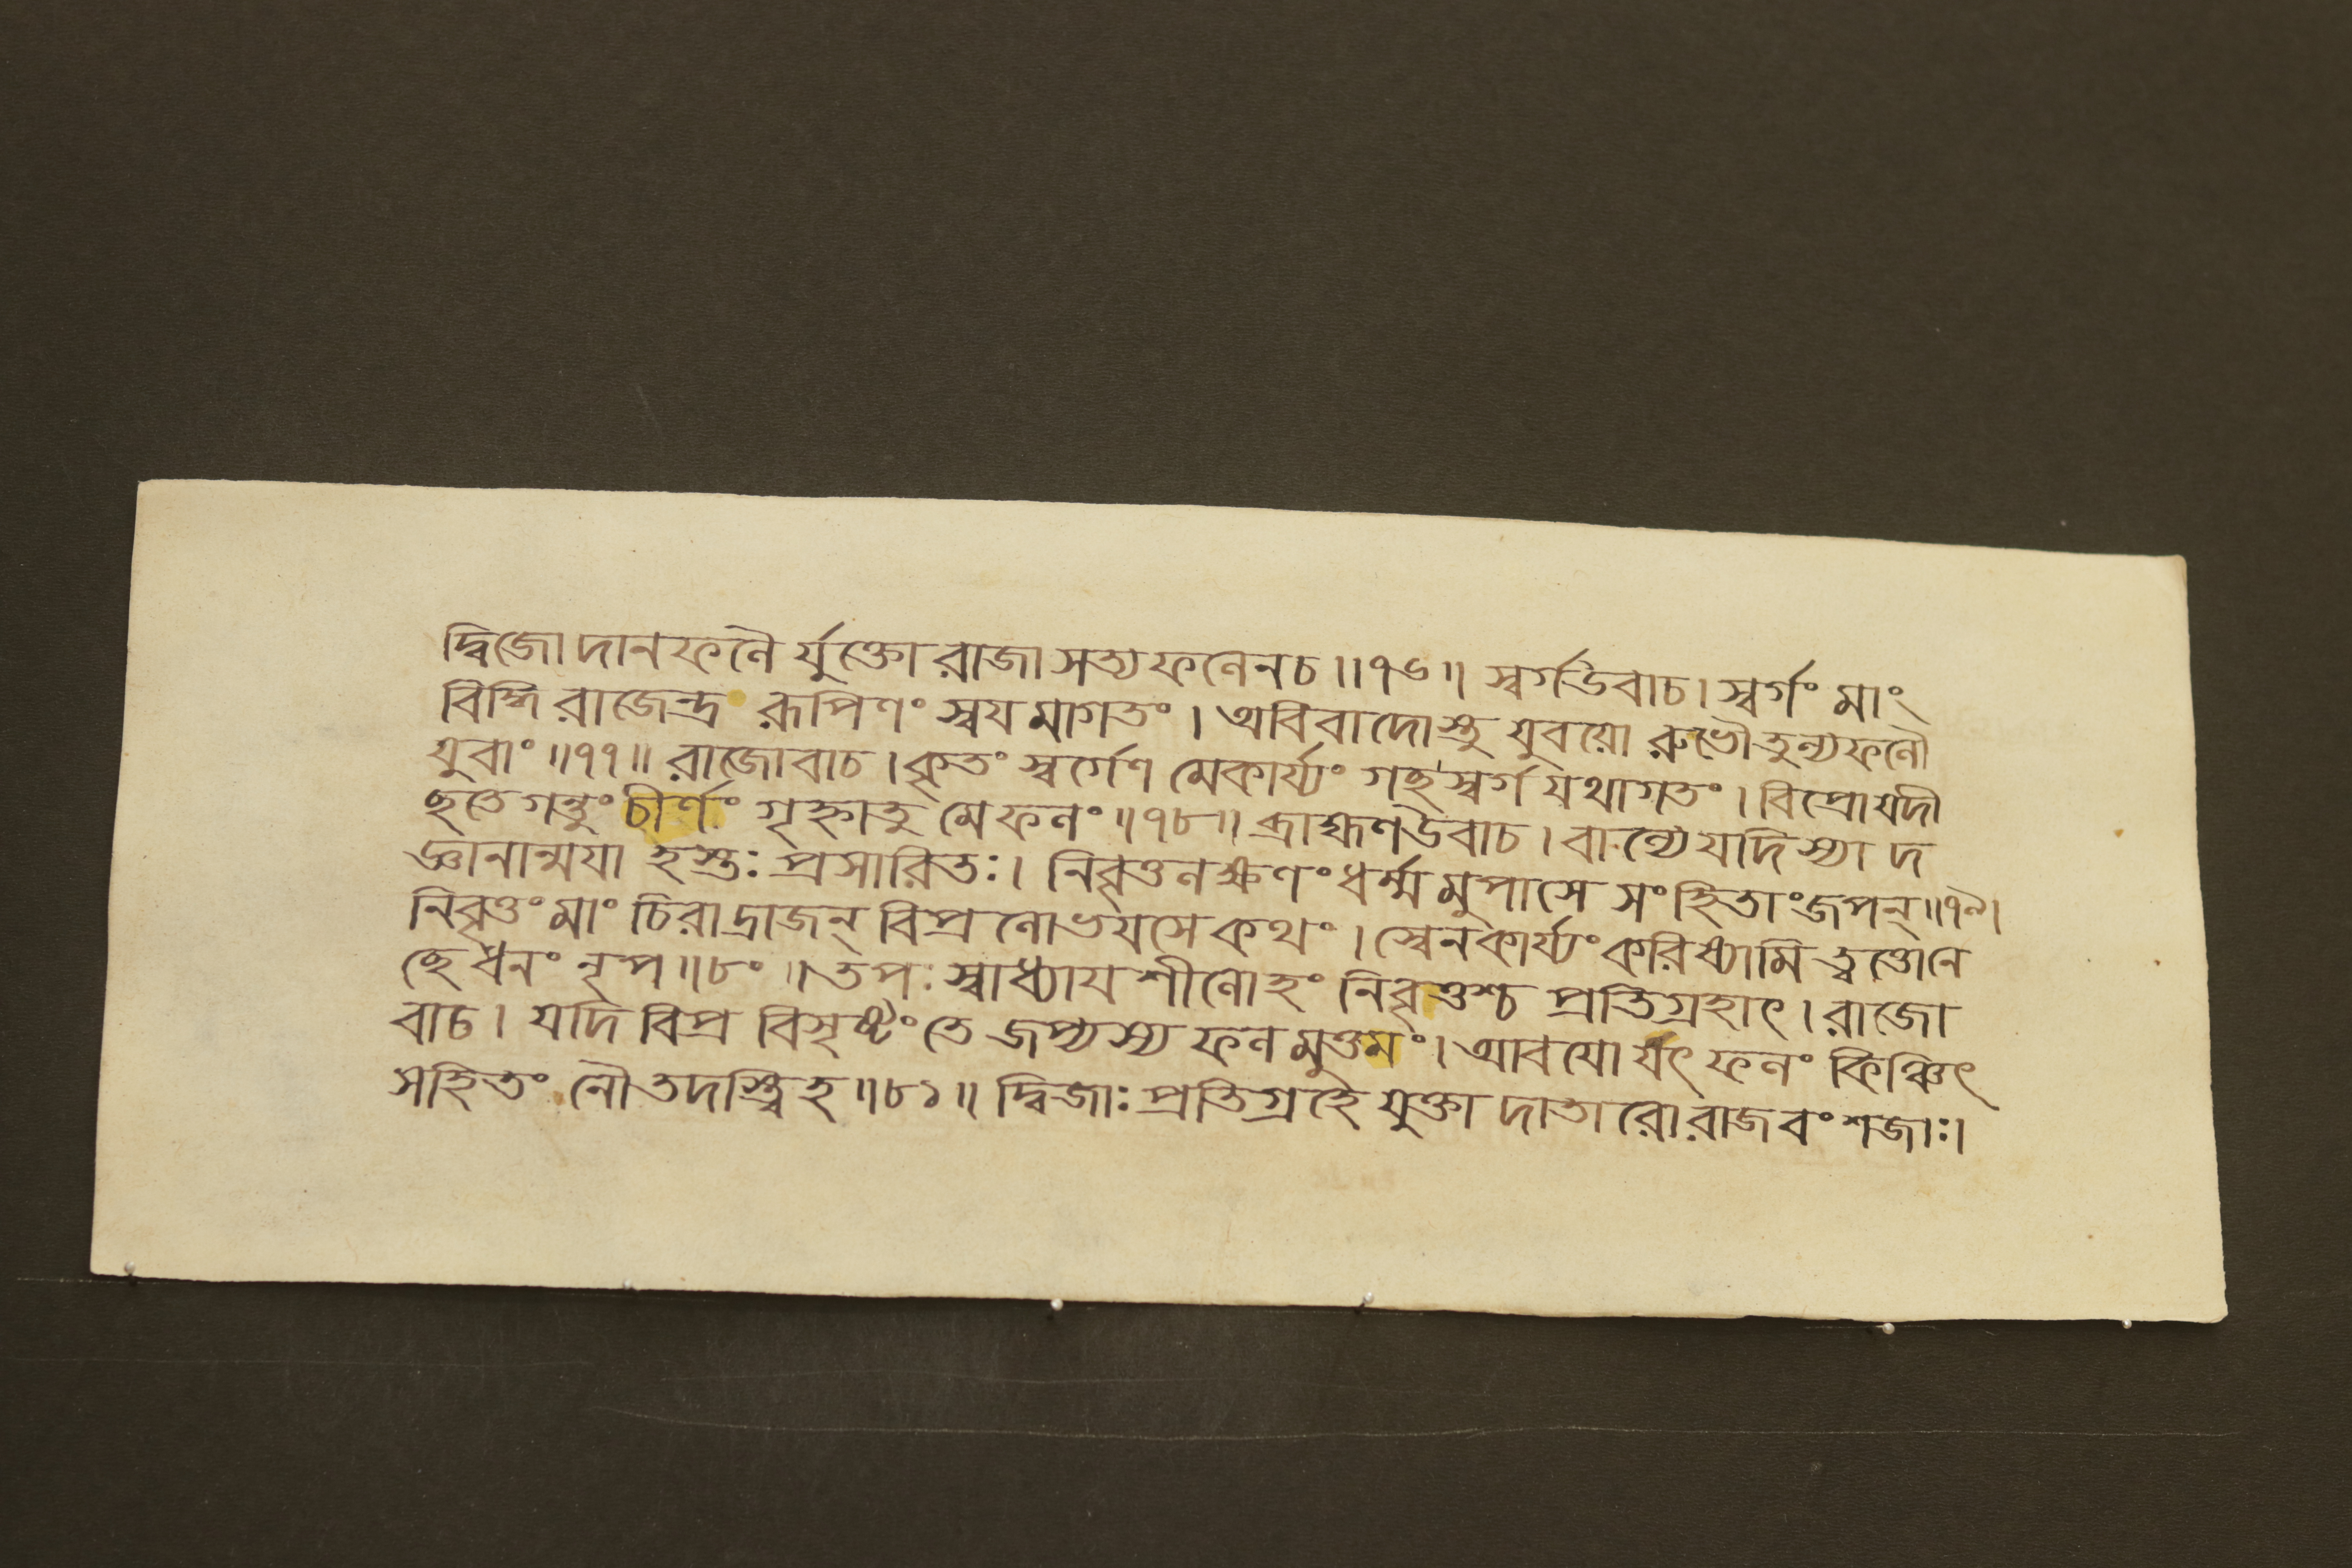 দ্বিজো দানফলৈ র্যুক্তো রাজা সত্যফলেন চ॥৭৬॥ স্বর্গউবাচ। স্বর্গং মাং
বিদ্ধি রাজেন্দ্র রূপিণং স্বয়মাগতং। অবিবাদোস্তু যুবয়ো রুভৌ তুল্যফলৌ
যুবাং॥৭৭॥ রাজোবাচ। কৃতং স্বর্গেণ মে কার্য্যং গচ্ছ স্বর্গ যথাগতং। বিপ্রো যদী
চ্ছতে গন্তুং চীর্ণং গৃহ্নাতু মে ফলং॥৭৮॥ ব্রাহ্মণউবাচ। বাল্যে যদি স্যাদ
জ্ঞানান্ময়া হস্তঃ প্রসারিতঃ। নিবৃত্তলক্ষণং ধর্ম্মমুপাসে সংহিতাং জপন্॥৭৯।
নিবৃত্তং মাং চিরাদ্রাজন্ বিপ্রলোভয়সে কথং। স্বেন কার্য্যং করিষ্যামি ত্বত্তো নে
চ্ছে ধনং নৃপ॥৮০॥ তপঃ স্বাধ্যায় শীলোহং নিবৃত্তশ্চ প্রতিগ্রহাৎ। রাজো
বাচ। যদি বিপ্র বিসৃষ্টং তে জপ্যস্য ফলমুত্তমং। আবয়ো র্যৎ ফলং কিঞ্চিৎ
সহিতং নৌ তদস্ত্বিহ॥৮১॥ দ্বিজাঃ প্রতিগ্রহে যুক্তা দাতারো রাজবংশজাঃ।